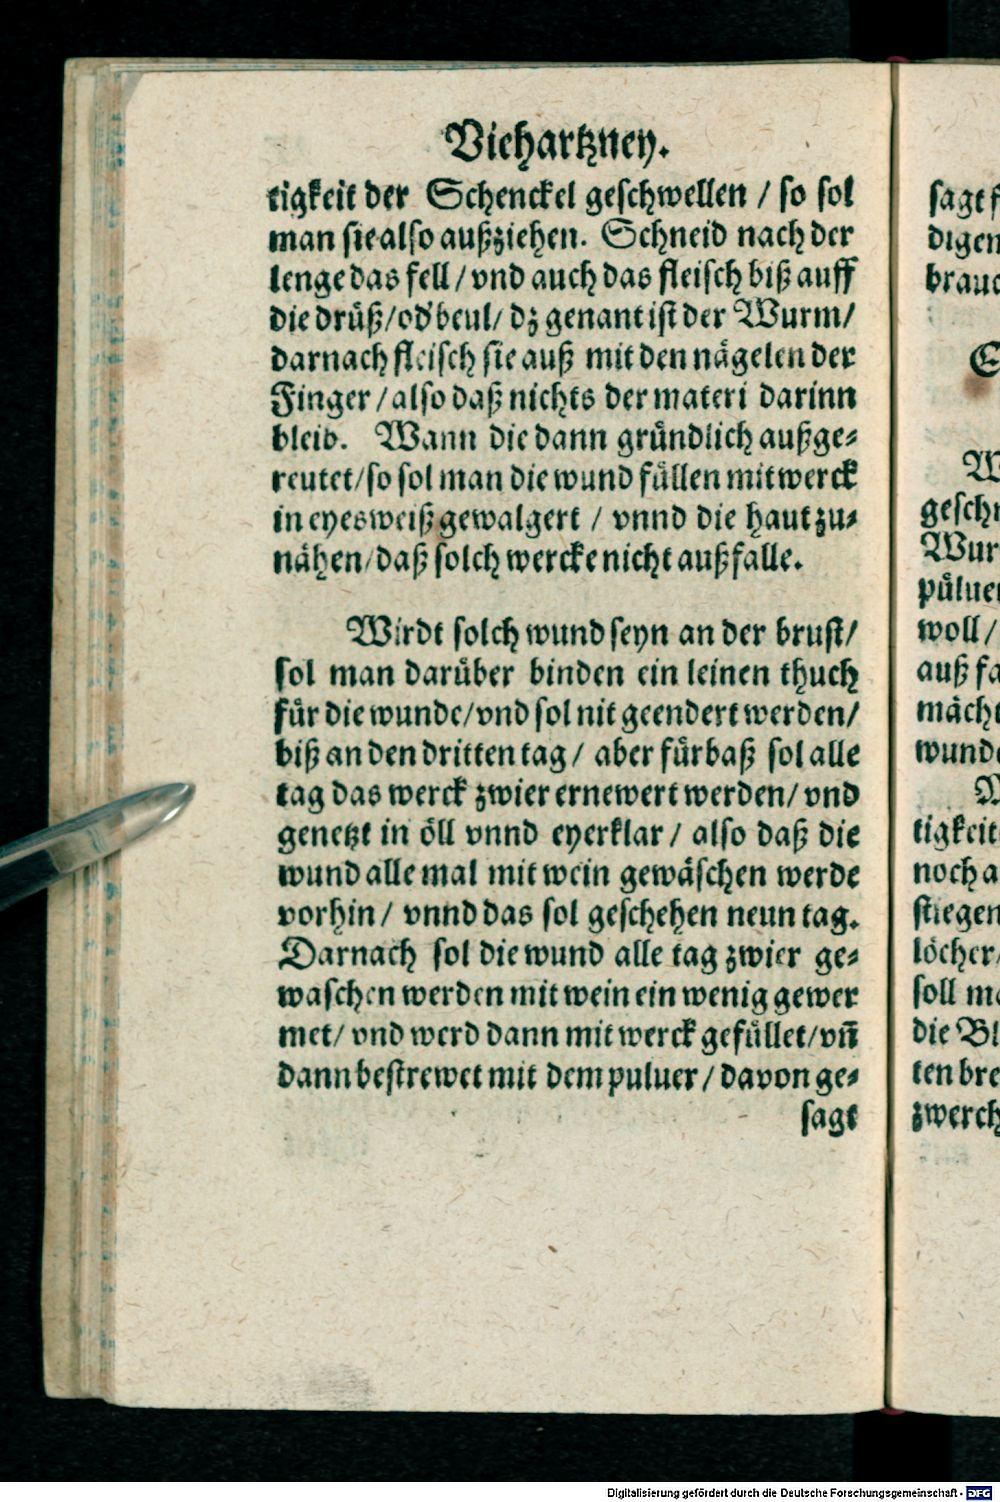 Viehartzney.
tigkeit der Schenckel geschwellen / so sol
man sie also außziehen. Schneid nach der
lenge das fell / vnd auch das fleisch biß auff
die drüß / od' beul / dz genant ist der Wurm /
darnach fleisch sie auß mit den nägelen der
Finger / also daß nichts der materi darinn
bleib. Wann die dann gründlich außge⸗
reutet / so sol man die wund füllen mit werck
in eyesweiß gewalgert / vnnd die haut zu⸗
nähen / daß solch wercke nicht außfalle.
Wirdt solch wund seyn an der brust /
sol man darüber binden ein leinen thuch
für die wunde / vnd sol nit geendert werden /
biß an den dritten tag / aber fürbaß sol alle
tag das werck zwier ernewert werden / vnd
genetzt in öll vnnd eyerklar / also daß die
wund alle mal mit wein gewäschen werde
vorhin / vnnd das sol geschehen neun tag.
Darnach sol die wund alle tag zwier ge⸗
waschen werden mit wein ein wenig gewer
met / vnd werd dann mit werck gefüllet / vñ
dann bestrewet mit dem puluer / davon ge⸗
sagt
sagt
digen
brauc
geschn
Wur
püluer
woll /
auß fa
mächt
wunde
tigkeit
noch a
stiegen
löcher /
soll ma
die Bl
ten bre
zwerch
Digitalisierung gefördert durch die Deutsche Forschungsgemeinschaft - DFG